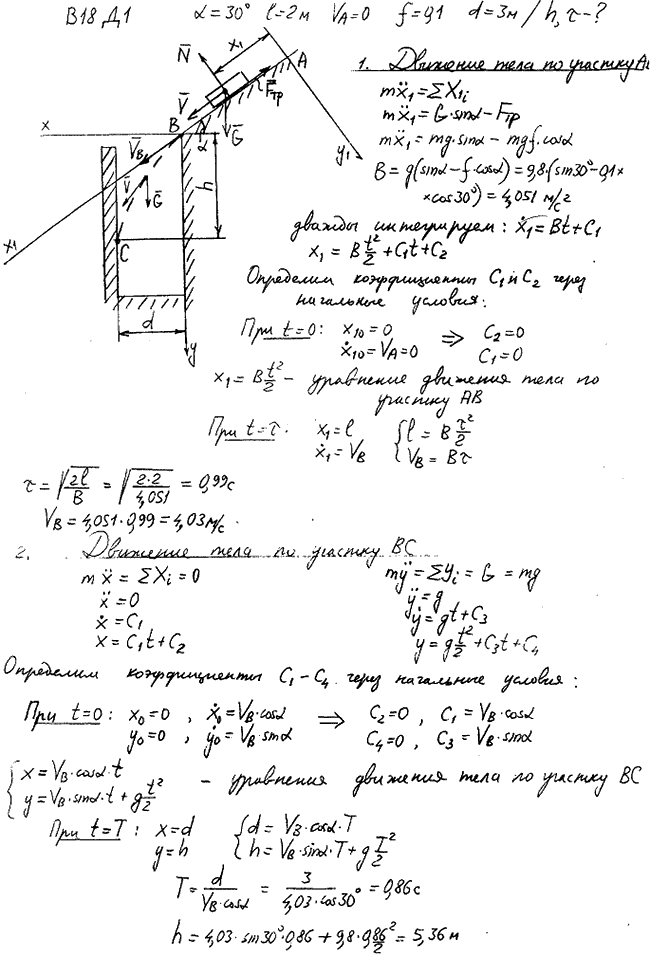 В18 Д1   α = 30°   l = 2 м   V_A = 0   f = 0,1   d = 3м / h, τ - ?
x₁
A
N̄
V̄
F̄тр
Ḡ
x
B
α
V̄_B
V̄
Ḡ
h
y₁
x₁
C
d
y
1. Движение тела по участку АВ
mẍ₁ = ΣX₁ᵢ
mẍ₁ = G·sinα - Fтр
mẍ₁ = mg·sinα - mgf·cosα
B = g(sinα - f·cosα) = 9,8·(sin30° - 0,1×
×cos30°) = 4,051 м/с²
дважды интегрируем: ẋ₁ = Bt + C₁
x₁ = B t²/2 + C₁t + C₂
Определим коэффициенты C₁ и C₂ через
начальные условия:
При t=0: x₁₀ = 0 ⇒ C₂ = 0
ẋ₁₀ = V_A = 0   C₁ = 0
x₁ = B t²/2 - уравнение движения тела по
участку АВ
При t=τ: x₁ = l   { l = B τ²/2
ẋ₁ = V_B   { V_B = Bτ
τ = √(2l/B) = √(2·2/4,051) = 0,99с
V_B = 4,051·0,99 = 4,03 м/с.
2. Движение тела по участку ВС
mẍ = ΣXᵢ = 0   mÿ = ΣYᵢ = G = mg
ẍ = 0   ÿ = g
ẋ = C₁   ẏ = gt + C₃
x = C₁t + C₂   y = g t²/2 + C₃t + C₄
Определим коэффициенты C₁ - C₄ через начальные условия:
При t=0: x₀ = 0 , ẋ₀ = V_B·cosα ⇒ C₂ = 0 , C₁ = V_B·cosα
y₀ = 0 , ẏ₀ = V_B·sinα   C₄ = 0 , C₃ = V_B·sinα
{ x = V_B·cosα·t
{ y = V_B·sinα·t + g t²/2 - уравнения движения тела по участку ВС
При t=T: x = d   { d = V_B·cosα·T
y = h   { h = V_B·sinα·T + g T²/2
T = d/(V_B·cosα) = 3/(4,03·cos30°) = 0,86 с
h = 4,03·sin30°·0,86 + 9,8·0,86²/2 = 5,36 м